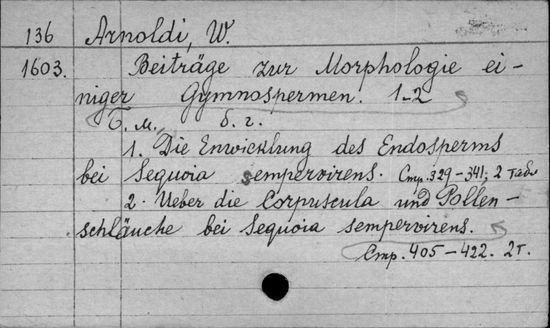 136 Arnoldi, W.
1603. Beiträge zur Morphologie ei-
niger Gymnospermen. 1-2
Б. м., б. г.
1. Die Enwicklung des Endosperms
bei Sequoia sempervirens. Стр. 329-341; 2 табл
2. Ueber die Corpuscula und Pollen-
schläuche bei Sequoia sempervirens.
Стр. 405-422. 2т.